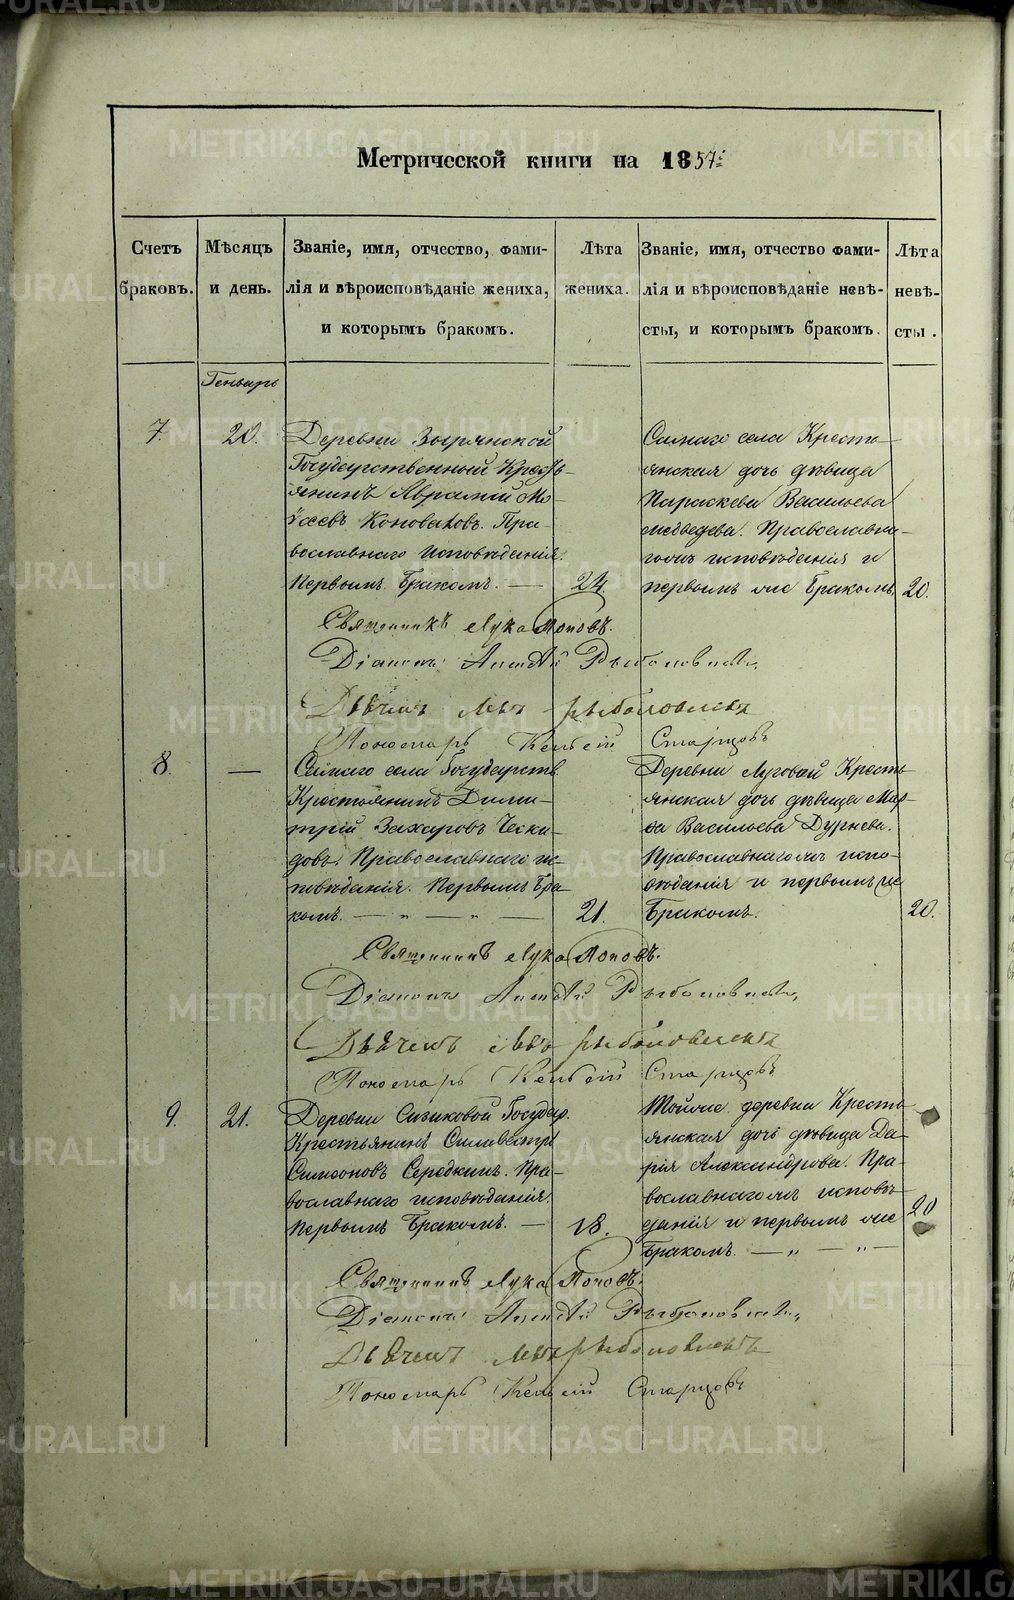 Метрической книги на 1857й
Счетъ браковъ.
Мѣсяцъ и день.
Званіе, имя, отчество, фами-
лія и вѣроисповѣданіе жениха,
и которымъ бракомъ.
Лѣта жениха.
Званіе, имя, отчество фами-
лія и вѣроисповѣданіе невѣ-
сты, и которымъ бракомъ.
Лѣта невѣ-
сты.
Генварь
7.
20.
Деревни Зырянской
Государственный Кресть-
янинъ Аврамій Мо-
ѵсеевъ Коноваловъ. Пра-
вославнаго исповѣданія.
Первымъ бракомъ. —
24.
Самаго села Кресть-
янская дочь дѣвица
Параскева Васильева
Медведева. Православна-
гожъ исповѣданія и
первымъ же бракомъ
20.
Священникъ Лука Поповъ.
Діаконъ Рыболовлевъ
Дьячекъ Левъ Рыболовлевъ
Пономарь Старцовъ
8.
—
Самаго села Государств.
Крестьянинъ Дими-
трій Захаровъ Чески-
довъ. Православнаго ис-
повѣданія. Первымъ бра-
комъ. — „ — „ —
21.
Деревни Луговой Кресть-
янская дочь дѣвица Мар-
ѳа Васильева Дурнева.
Православнагожъ испо-
вѣданія и первымъ же
бракомъ.
20.
Священникъ Лука Поповъ.
Діаконъ Рыболовлевъ
Дьячекъ Левъ Рыболовлевъ
Пономарь Старцовъ
9.
21.
Деревни Сизиковой Государ.
Крестьянинъ Сильвестръ
Симеоновъ Середкинъ. Пра-
вославнаго исповѣданія.
Первымъ бракомъ. —
18.
Тойже деревни Кресть-
янская дочь дѣвица Да-
рія Александрова. Пра-
вославнагожъ исповѣ-
данія и первымъ же
бракомъ. — „ — „ —
20
Священникъ Лука Поповъ.
Діаконъ Рыболовлевъ
Дьячекъ Левъ Рыболовлевъ
Пономарь Старцовъ
METRIKI.GASO-URAL.RU